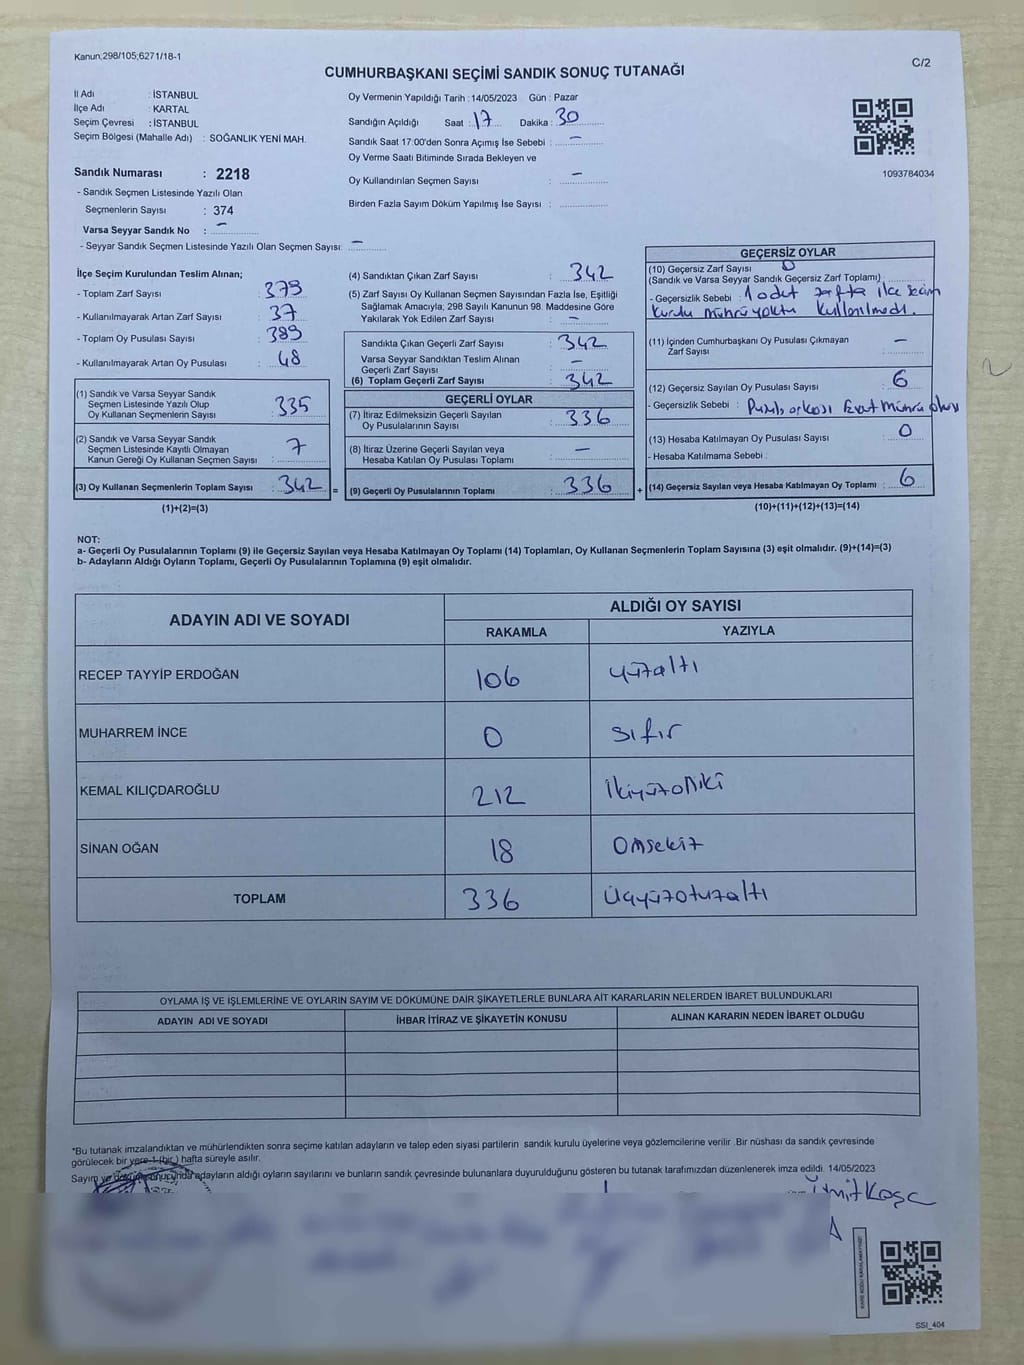 Kanun;298/105;6271/18-1
C/2
CUMHURBAŞKANI SEÇİMİ SANDIK SONUÇ TUTANAĞI
İl Adı : İSTANBUL
İlçe Adı : KARTAL
Seçim Çevresi : İSTANBUL
Seçim Bölgesi (Mahalle Adı) : SOĞANLIK YENİ MAH.
Sandık Numarası : 2218
- Sandık Seçmen Listesinde Yazılı Olan
Seçmenlerin Sayısı : 374
Varsa Seyyar Sandık No : -
- Seyyar Sandık Seçmen Listesinde Yazılı Olan Seçmen Sayısı: -
Oy Vermenin Yapıldığı Tarih : 14/05/2023 Gün : Pazar
Sandığın Açıldığı Saat : 17 Dakika : 30
Sandık Saat 17:00'den Sonra Açımış İse Sebebi : -
Oy Verme Saati Bitiminde Sırada Bekleyen ve
Oy Kullandırılan Seçmen Sayısı : -
Birden Fazla Sayım Döküm Yapılmış İse Sayısı :
1093784034
İlçe Seçim Kurulundan Teslim Alınan;
- Toplam Zarf Sayısı : 379
- Kullanılmayarak Artan Zarf Sayısı : 37
- Toplam Oy Pusulası Sayısı : 389
- Kullanılmayarak Artan Oy Pusulası : 48
(1) Sandık ve Varsa Seyyar Sandık
Seçmen Listesinde Yazılı Olup
Oy Kullanan Seçmenlerin Sayısı : 335
(2) Sandık ve Varsa Seyyar Sandık
Seçmen Listesinde Kayıtlı Olmayan
Kanun Gereği Oy Kullanan Seçmen Sayısı : 7
(3) Oy Kullanan Seçmenlerin Toplam Sayısı : 342 =
(1)+(2)=(3)
(4) Sandıktan Çıkan Zarf Sayısı : 342
(5) Zarf Sayısı Oy Kullanan Seçmen Sayısından Fazla İse, Eşitliği
Sağlamak Amacıyla; 298 Sayılı Kanunun 98. Maddesine Göre
Yakılarak Yok Edilen Zarf Sayısı : -
Sandıkta Çıkan Geçerli Zarf Sayısı : 342
Varsa Seyyar Sandıktan Teslim Alınan
Geçerli Zarf Sayısı : -
(6) Toplam Geçerli Zarf Sayısı : 342
GEÇERLİ OYLAR
(7) İtiraz Edilmeksizin Geçerli Sayılan
Oy Pusulalarının Sayısı : 336
(8) İtiraz Üzerine Geçerli Sayılan veya
Hesaba Katılan Oy Pusulası Toplamı : -
(9) Geçerli Oy Pusulalarının Toplamı : 336 +
GEÇERSİZ OYLAR
(10) Geçersiz Zarf Sayısı : 0
(Sandık ve Varsa Seyyar Sandık Geçersiz Zarf Toplamı)
- Geçersizlik Sebebi : 1 adet zarfta ilçe seçim
kurulu mührü yoktu kullanılmadı.
(11) İçinden Cumhurbaşkanı Oy Pusulası Çıkmayan
Zarf Sayısı : -
(12) Geçersiz Sayılan Oy Pusulası Sayısı : 6
- Geçersizlik Sebebi : Pusula arkası Evet mührü
(13) Hesaba Katılmayan Oy Pusulası Sayısı : 0
- Hesaba Katılmama Sebebi :
(14) Geçersiz Sayılan veya Hesaba Katılmayan Oy Toplamı : 6
(10)+(11)+(12)+(13)=(14)
NOT:
a- Geçerli Oy Pusulalarının Toplamı (9) ile Geçersiz Sayılan veya Hesaba Katılmayan Oy Toplamı (14) Toplamları, Oy Kullanan Seçmenlerin Toplam Sayısına (3) eşit olmalıdır. (9)+(14)=(3)
b- Adayların Aldığı Oyların Toplamı, Geçerli Oy Pusulalarının Toplamına (9) eşit olmalıdır.
ADAYIN ADI VE SOYADI ALDIĞI OY SAYISI
RAKAMLA YAZIYLA
RECEP TAYYİP ERDOĞAN 106 yüzaltı
MUHARREM İNCE 0 sıfır
KEMAL KILIÇDAROĞLU 212 İkiyüzoniki
SİNAN OĞAN 18 Onsekiz
TOPLAM 336 Üçyüzotuzaltı
OYLAMA İŞ VE İŞLEMLERİNE VE OYLARIN SAYIM VE DÖKÜMÜNE DAİR ŞİKAYETLERLE BUNLARA AİT KARARLARIN NELERDEN İBARET BULUNDUKLARI
ADAYIN ADI VE SOYADI İHBAR İTİRAZ VE ŞİKAYETİN KONUSU ALINAN KARARIN NEDEN İBARET OLDUĞU
*Bu tutanak imzalandıktan ve mühürlendikten sonra seçime katılan adayların ve talep eden siyasi partilerin sandık kurulu üyelerine veya gözlemcilerine verilir .Bir nüshası da sandık çevresinde
görülecek bir yere 1 (bir ) hafta süreyle asılır.
Sayım ve adayların aldığı oyların sayılarını ve bunların sandık çevresinde bulunanlara duyurulduğunu gösteren bu tutanak tarafımızdan düzenlenerek imza edildi. 14/05/2023
Ümit Koşç
SSI_404